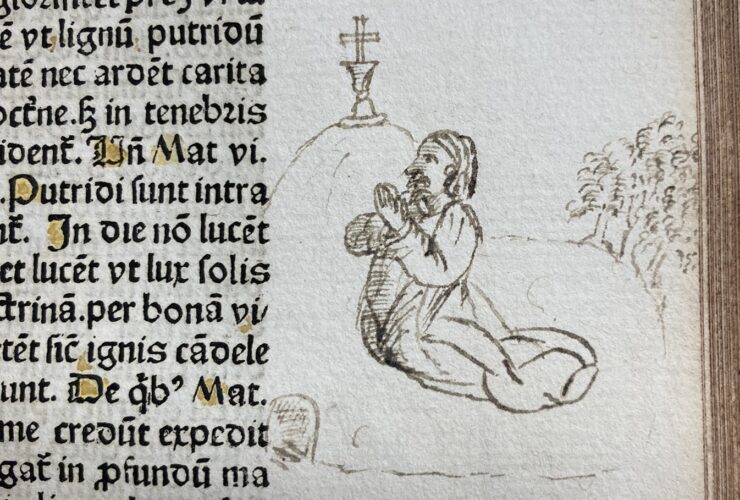 ē vt lignū putridū
atē nec ardēt carita
octne. ꝫ in tenebris
ident̄. Un̄ Mat vi.
. Putridi sunt intra
nt̄. In die nō lucēt
et lucēt vt lux solis
ctrinā. per bonā vi/
ctēt sic̄ ignis cādele
unt. De q̄bꝰ Mat.
me credūt expedit
gat̄ in ꝓfundū ma